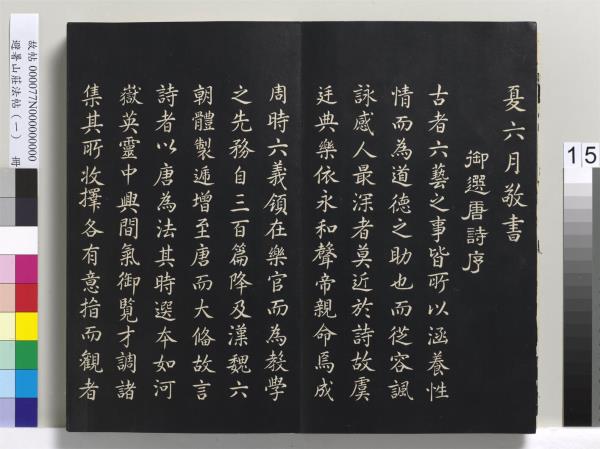 夏六月敬書
御選唐詩序
古者六藝之事皆所以涵養性
情而為道德之助也而從容諷
詠感人最深者莫近於詩故虞
廷典樂依永和聲帝親命焉成
周時六義領在樂官而為教學
之先務自三百篇降及漢魏六
朝體製遞增至唐而大備故言
詩者以唐為法其時選本如河
嶽英靈中興間氣御覽才調諸
集其所收擇各有意指而觀者
故帖 000077N000000000
避暑山莊法帖(一)
15